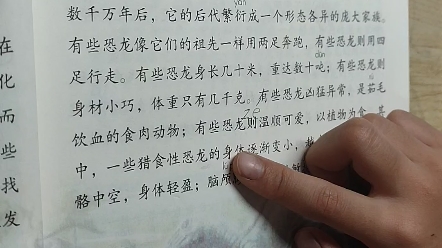 yǎn
数千万年后，它的后代繁衍成一个形态各异的庞大家族。
有些恐龙像它们的祖先一样用两足奔跑，有些恐龙则用四
dūn
足行走。有些恐龙身长几十米，重达数十吨；有些恐龙则
身材小巧，体重只有几千克。有些恐龙凶猛异常，是茹毛
饮血的食肉动物；有些恐龙则温顺可爱，以植物为食。其
中，一些猎食性恐龙的身体逐渐变小，
骼中空，身体轻盈；脑颅
在
化
而
些
找
发